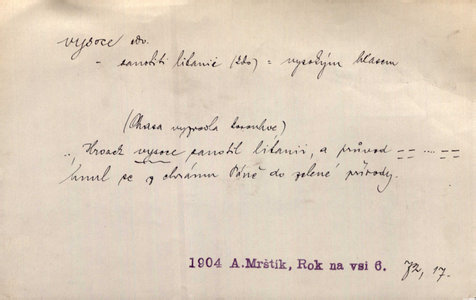 vysoce adv.
- zanotiti litanie (kdo) = vysokým hlasem
(Chasa vyzvedla korouhve)
„Hrozek vysoce zanotil litanii, a průvod == ... ==
hnul se z chrámu Páně do zelené přírody.
1904 A.Mrštík, Rok na vsi 6. 72, 17.